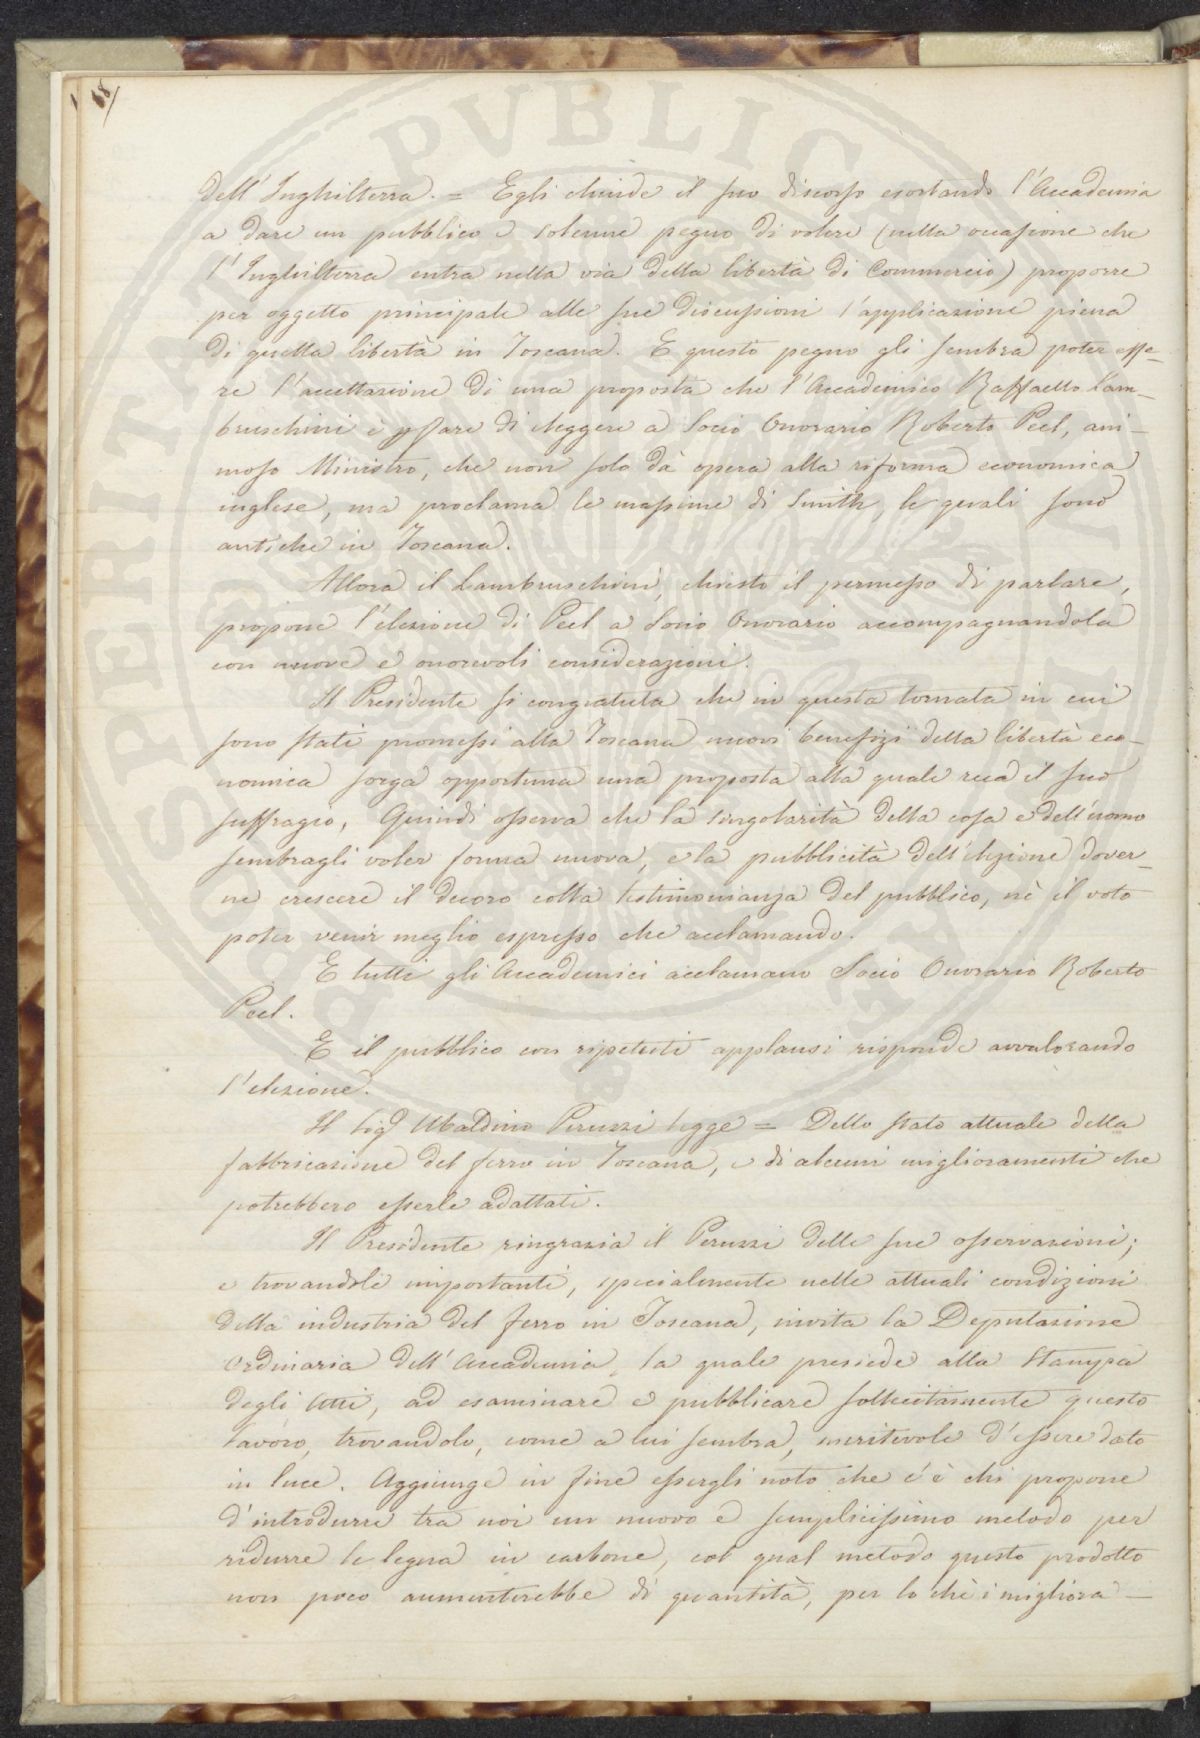 68/
dell'Inghilterra. = Egli chiude il suo discorso esortando l'Accademia
a dare un pubblico e solenne pegno di volere (nella occasione che
l'Inghilterra entra nella via della libertà di Commercio) proporre
per oggetto principale alle sue discussioni l'applicazione piena
di quella libertà in Toscana. E questo pegno gli sembra poter esse-
re l'accettazione di una proposta che l'Accademico Raffaello Lam-
bruschini è per fare di eleggere a Socio Onorario Roberto Peel, ani-
moso Ministro, che non solo dà opera alla riforma economica
inglese, ma proclama le massime di Smith, le quali sono
antiche in Toscana.
Allora il Lambruschini, chiesto il permesso di parlare,
propone l'elezione di Peel a Socio Onorario accompagnandola
con nuove e onorevoli considerazioni.
Il Presidente si congratula che in questa tornata in cui
sono stati promessi alla Toscana nuovi benefizj della libertà eco-
nomica sorga opportuna una proposta alla quale reca il suo
suffragio, Quindi osserva che la singolarità della cosa e dell'uomo
sembragli voler forma nuova, e la pubblicità dell'elezione dover-
ne crescere il decoro colla testimonianza del pubblico, nè il voto
poter venir meglio espresso che acclamando.
E tutti gli Accademici acclamano Socio Onorario Roberto
Peel.
E il pubblico con ripetuti applausi risponde avvalorando
l'elezione.
Il Sigr Ubaldino Peruzzi legge = Dello stato attuale della
fabbricazione del ferro in Toscana, e di alcuni miglioramenti che
potrebbero esserle adattati.
Il Presidente ringrazia il Peruzzi delle sue osservazioni;
e trovandole importanti, specialmente nelle attuali condizioni
della industria del ferro in Toscana, invita la Deputazione
Ordinaria dell'Accademia, la quale presiede alla Stampa
degli Atti, ad esaminare e pubblicare sollecitamente questo
lavoro, trovandolo, come a lui sembra, meritevole d'essere dato
in luce. Aggiunge in fine essergli noto che c'è chi propone
d'introdurre tra noi un nuovo e semplicissimo metodo per
ridurre le legna in carbone, col qual metodo questo prodotto
non poco aumenterebbe di quantità, per lo chè i migliora-